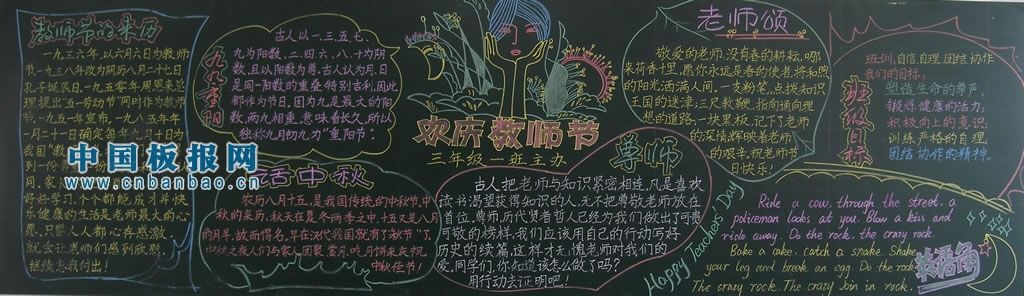 教师节的来历
一九三六年,以六月六日为教师
节.一九三八改为阴历八月二十七日
孔子诞辰日.一九五零年周恩来总
理提出"五一劳动节"同时作为教师
节.一九五一年宣布,一九八五年一
月二十一日确定每年九月十日为
我国"教
到一份
月
家
好好学习,个个都能成才并快
乐健康的生活是老师最大的心
愿.只要人人都心存感激,
就会让老师们感到欣慰,
继续为我付出!
中国板报网
www.cnbanbao.cn
九九重阳
古人以一、三、五、七、
九为阳数,二、四、六、八、十为阴
数,且以阳数为尊,古人认为月、日
是同一阳数的重叠,特别吉利,因此
都作为节日。因为九是最大的阳
数,两九相重,意味着长久,所以
独称九月初九为"重阳节"
话中秋
农历八月十五,是我国传统的中秋节,中
秋的来历,秋天在夏冬两季之中,十五又是八月
的月半,故而得名,早在汉代我国就有了"秋节"了.
中秋之夜人们与家人团聚赏月,吃月饼来庆祝
中秋佳节!
欢庆教师节
三年级一班主办
尊师
古人把老师与知识紧密相连,凡是喜欢
读书渴望获得知识的人,无不把尊敬老师放在
首位,尊师,历代贤者哲人已经为我们做出了可贵
可敬的榜样,我们应该用自己的行动写好
历史的续篇,这样才无愧老师对我们的
爱,同学们,你知道该怎么做了吗?
用行动去证明吧!
老师颂
敬爱的老师,没有春的耕耘,哪
来荷香千里,愿你永远是春的使者,将和煦
的阳光洒满人间。一支粉笔,点拨知识
王国的迷津;三尺教鞭,指向通向理
想的道路,一块黑板,记下了老师
的深情,辉映着老师
的艰辛,祝老师节
日快乐!
Happy Teachers Day
班级目标
班训:自信自理团结协作
我们的目标:
塑造生命的尊严,
锻炼健康的活力;
积极向上的意识,
训练严格的自理
团结协作的精神。
Ride a cow, through the street, a
policeman looks at you. Blow a kiss and
ride away. Do the rock, the crazy rock.
Bake a cake, catch a snake. Shake
your leg and break an egg. Do the rock
The crazy rock. The crazy join in rock.
英语角